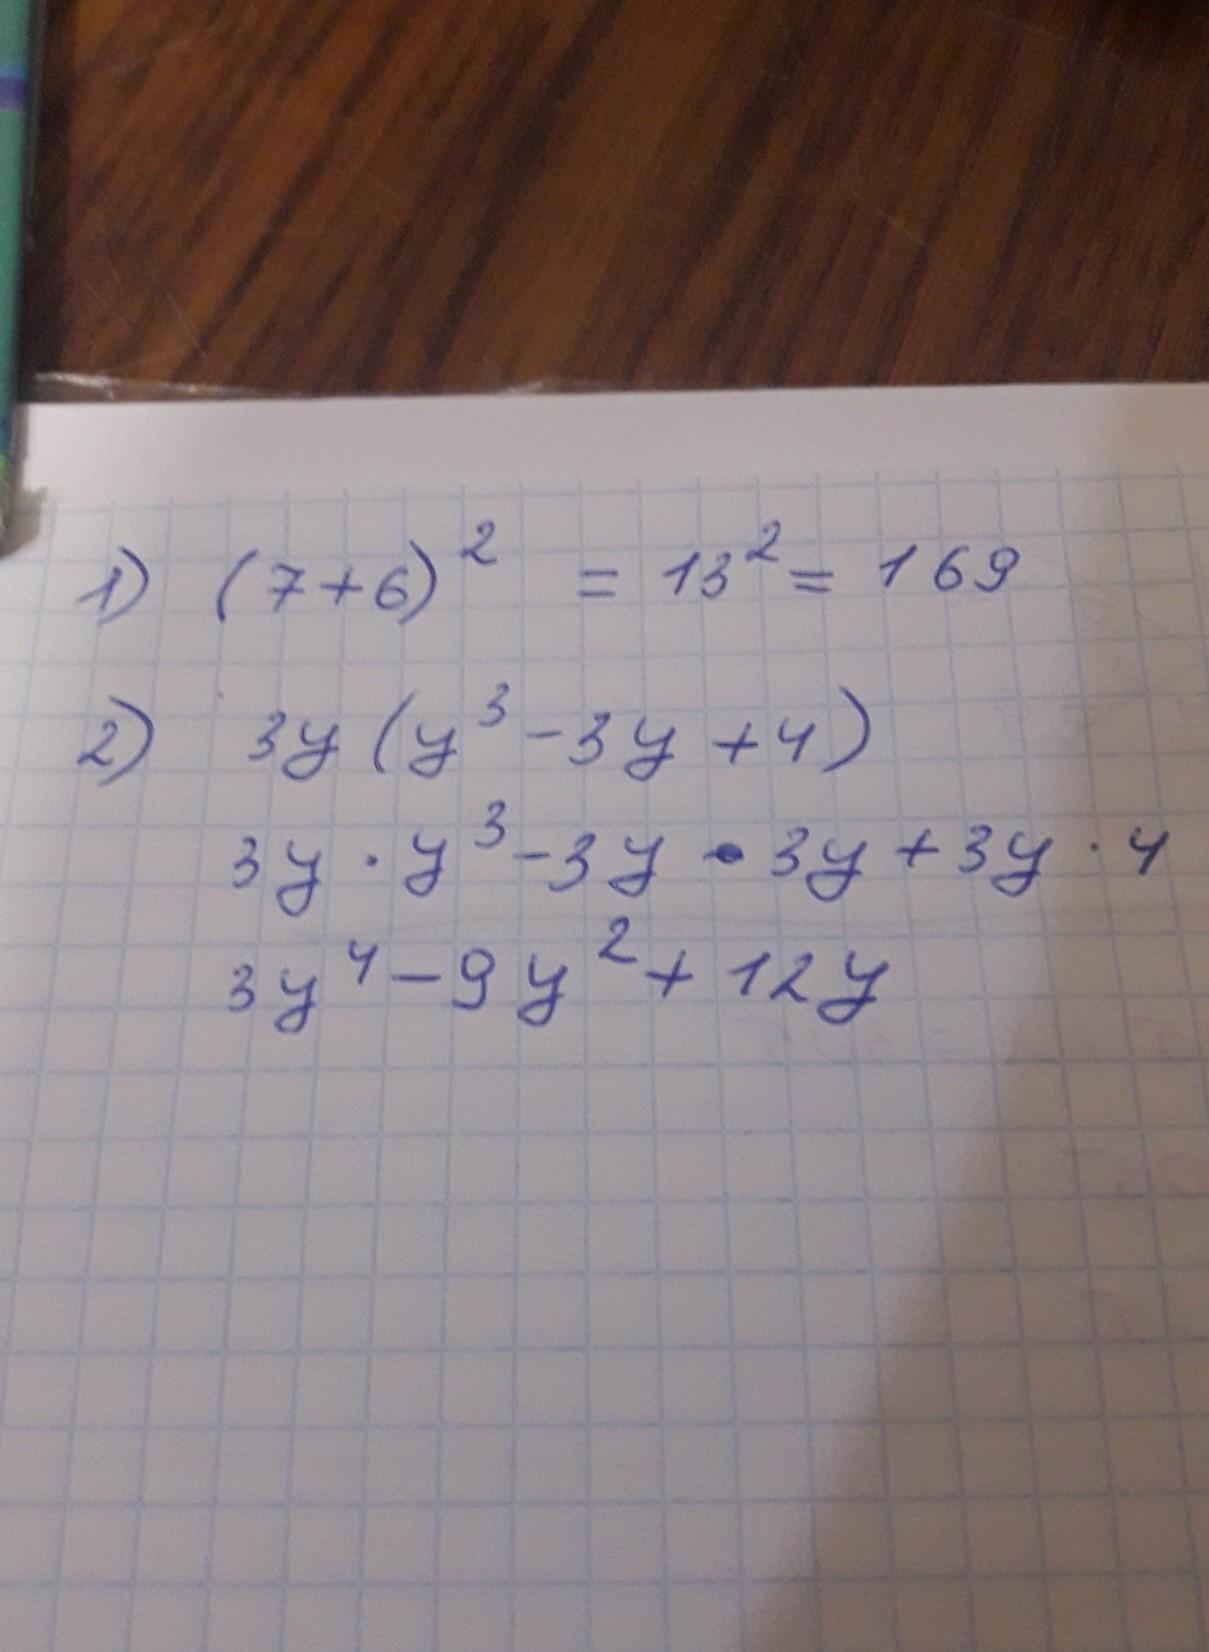 1) (7+6)² = 13² = 169
2) 3y (y³ - 3y + 4)
3y · y³ - 3y · 3y + 3y · 4
3y⁴ - 9y² + 12y